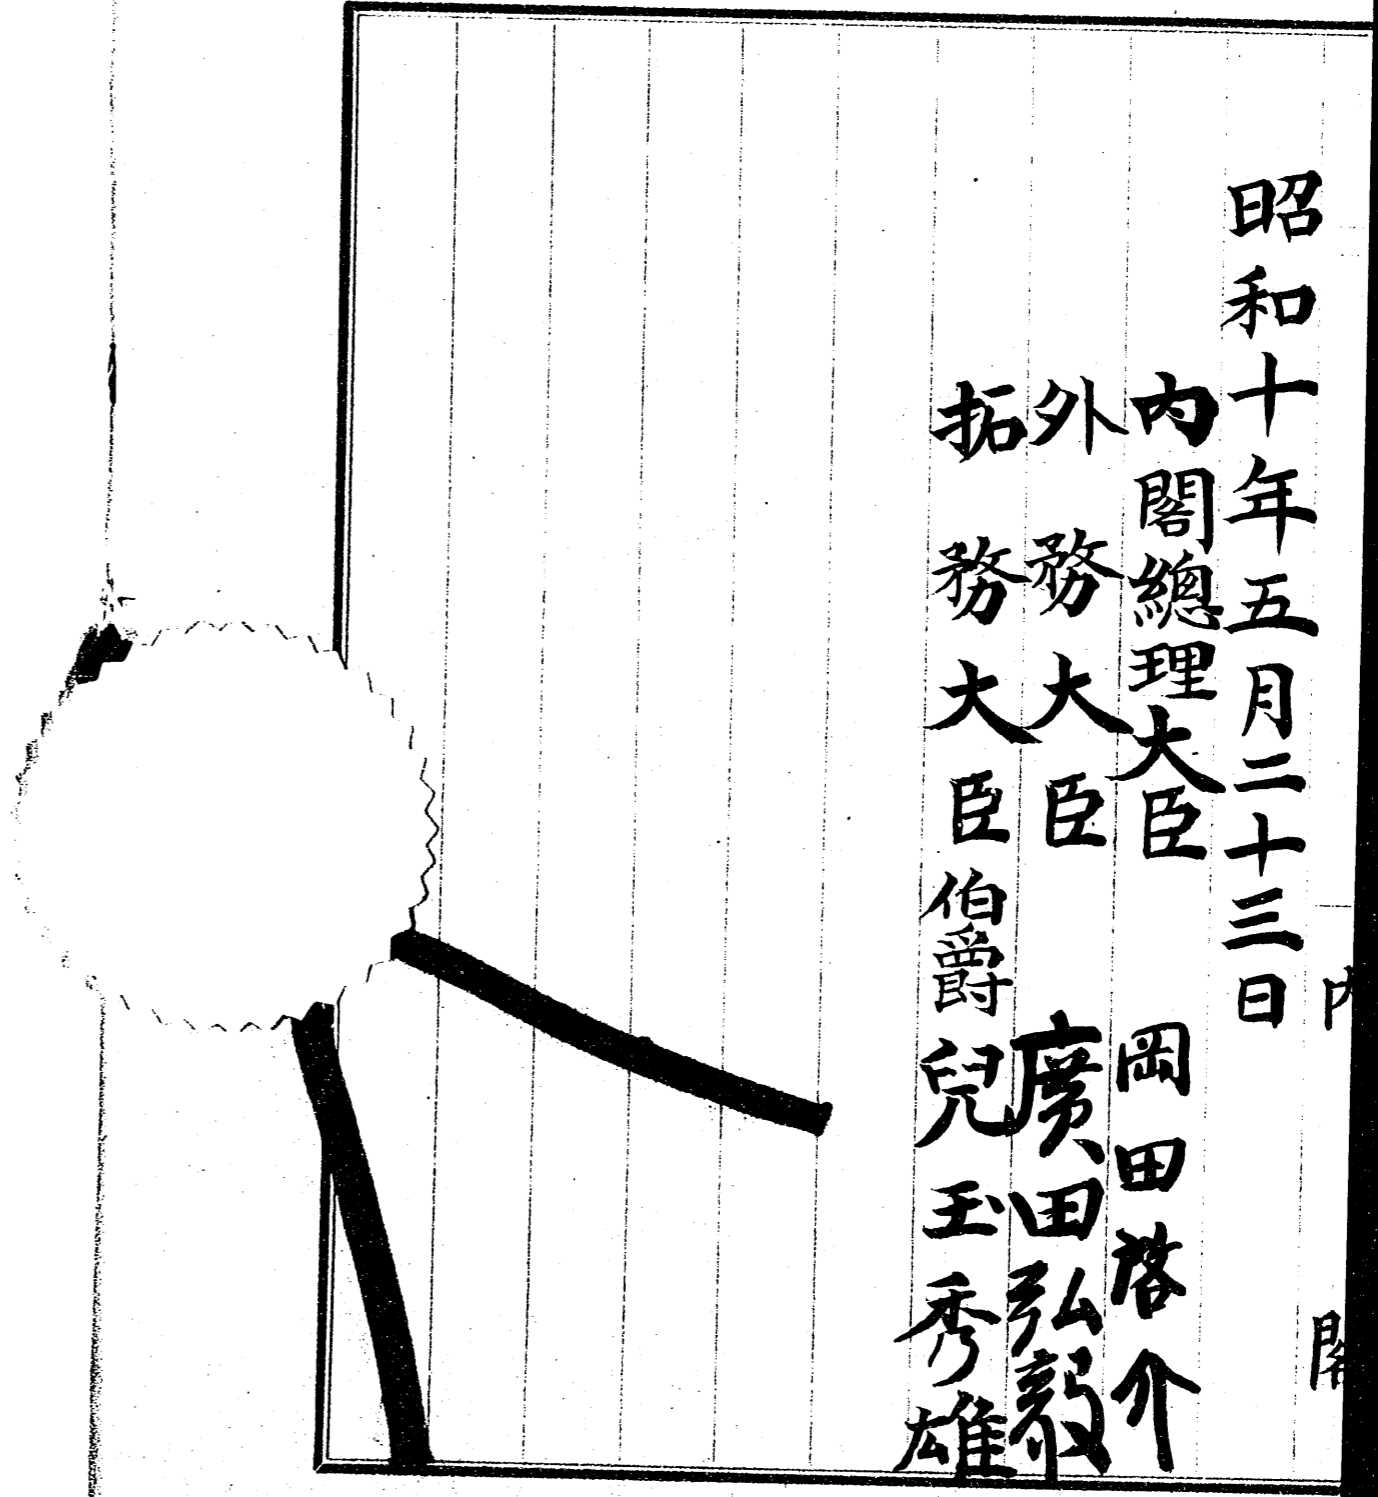 內閣
昭和十年五月二十三日
內閣總理大臣 岡田啓介
外務大臣 廣田弘毅
拓務大臣伯爵 兒玉秀雄